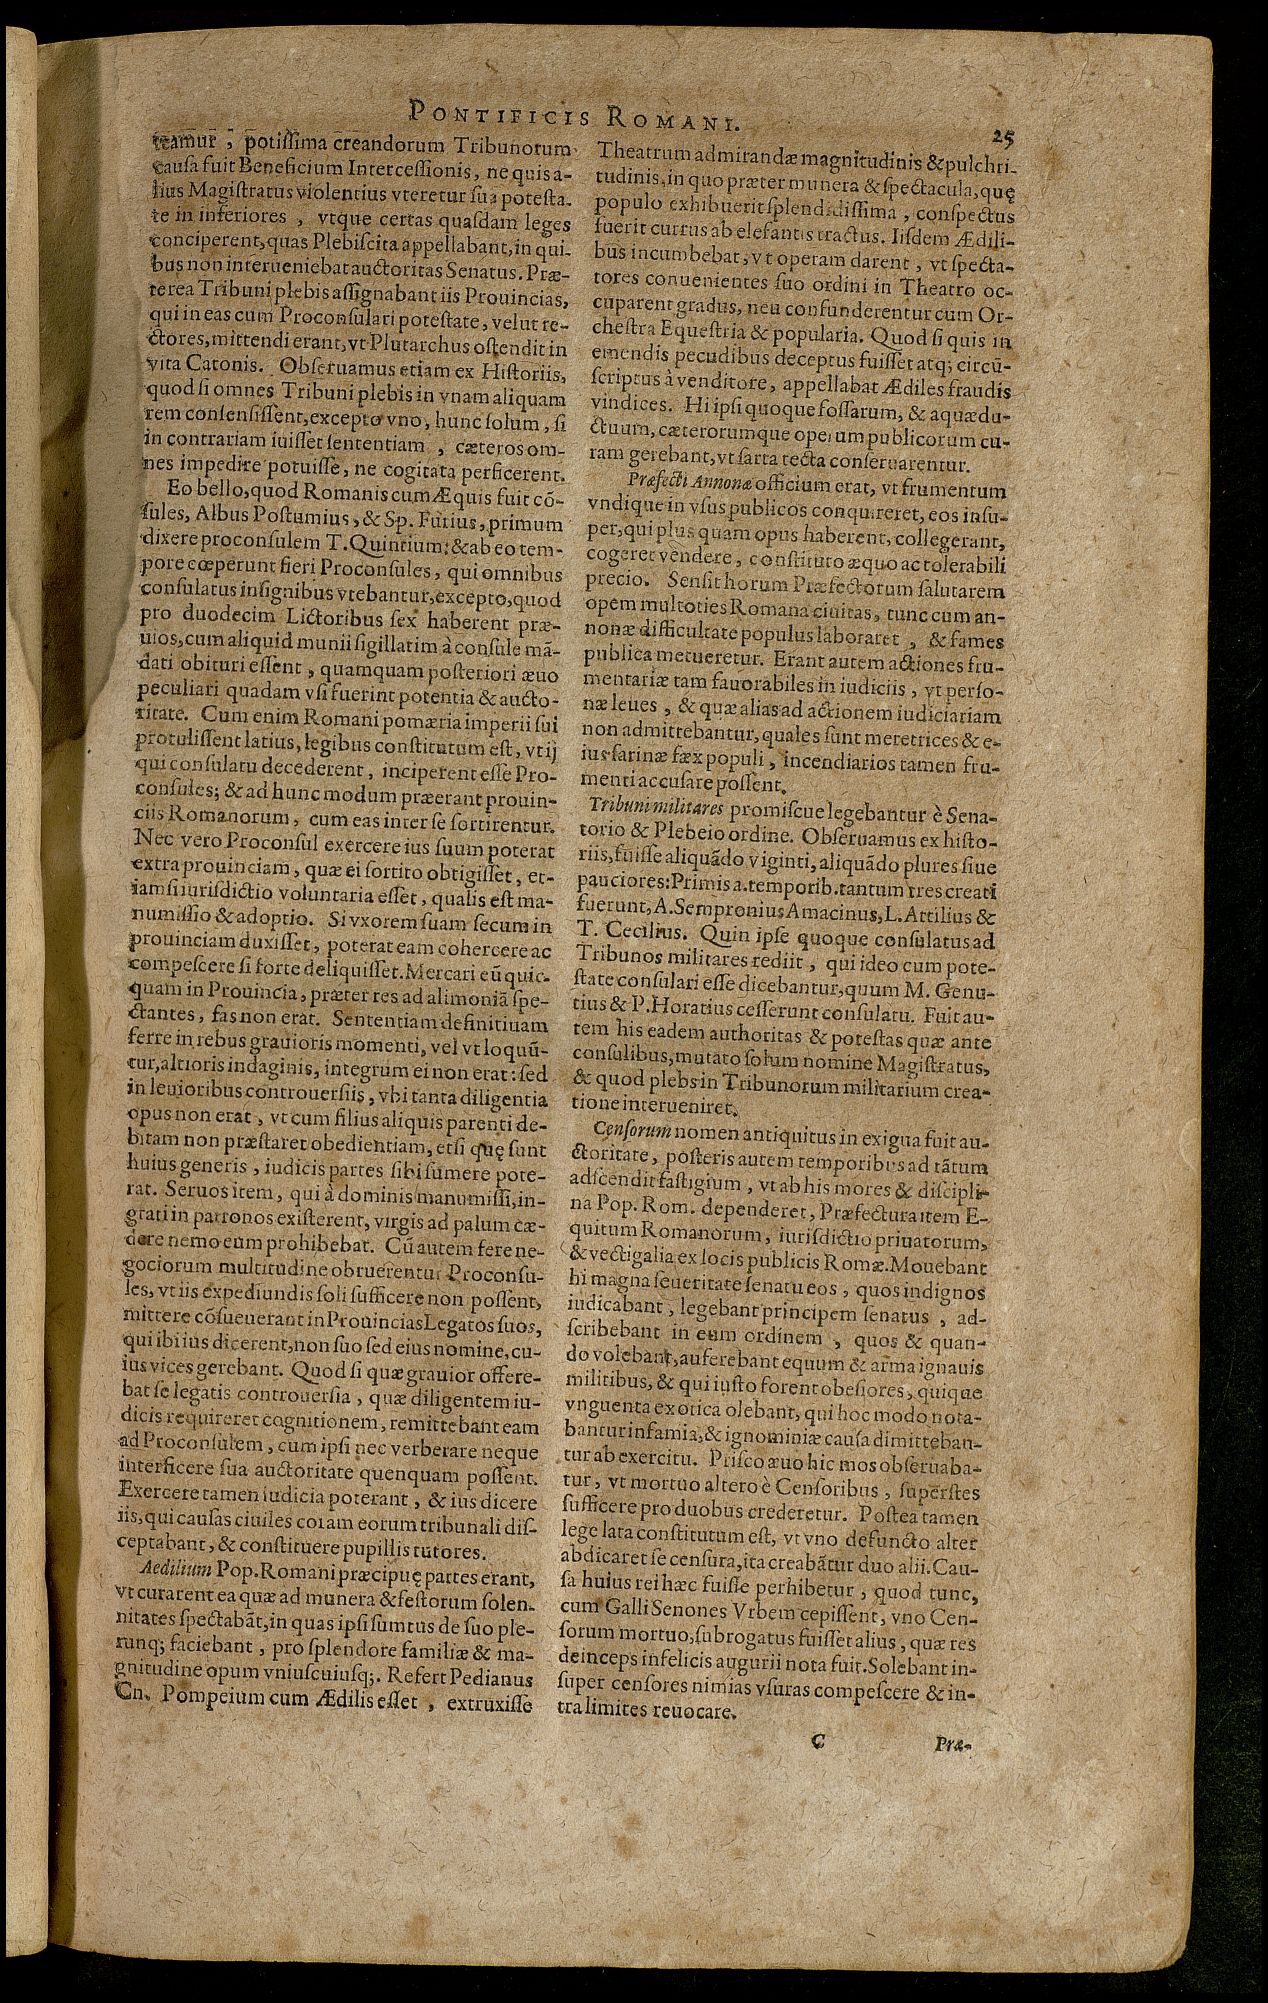 PONTIFICIS ROMANI.
25
teamur, potissima creandorum Tribunorum
causa fuit Beneficium Intercessionis, ne quis a-
lius Magistratus violentius vteretur sua potesta-
te in inferiores, vtque certas quasdam leges
conciperent, quas Plebiscita appellabant, in qui-
bus non interueniebat auctoritas Senatus. Præ-
terea Tribuni plebis assignabant iis Prouincias,
qui in eas cum Proconsulari potestate, velut re-
ctores, mittendi erant, vt Plutarchus ostendit in
vita Catonis. Obseruamus etiam ex Historiis,
quod si omnes Tribuni plebis in vnam aliquam
rem consensissent, excepto vno, hunc solum, si
in contrariam iuisset sententiam, cæteros om-
nes impedire potuisse, ne cogitata perficerent.
Eo bello, quod Romanis cum Æquis fuit cõ-
sules, Albus Postumius, & Sp. Furius, primum
dixere proconsulem T. Quintium: & ab eo tem-
pore cœperunt fieri Proconsules, qui omnibus
consulatus insignibus vtebantur, excepto, quod
pro duodecim Lictoribus sex haberent præ-
uios, cum aliquid munii sigillatim à consule mã-
dati obituri essent, quamquam posteriori æuo
peculiari quadam vsi fuerint potentia & aucto-
ritate. Cum enim Romani pomæria imperii sui
protulissent latius, legibus constitutum est, vt ij
qui consulatu decederent, inciperent esse Pro-
consules; & ad hunc modum præerant prouin-
ciis Romanorum, cum eas inter se sortirentur.
Nec vero Proconsul exercere ius suum poterat
extra prouinciam, quæ ei sortito obtigisset, et-
iam si iurisdictio voluntaria esset, qualis est ma-
numissio & adoptio. Si vxorem suam secum in
prouinciam duxisset, poterat eam cohercere ac
compescere si forte deliquisset. Mercari eũ quic-
quam in Prouincia, præter res ad alimoniã spe-
ctantes, fas non erat. Sententiam definitiuam
ferre in rebus grauioris momenti, vel vt loquũ-
tur, altioris indaginis, integrum ei non erat: sed
in leuioribus controuersiis, vbi tanta diligentia
opus non erat, vt cum filius aliquis parenti de-
bitam non præstaret obedientiam, et si quę sunt
huius generis, iudicis partes sibi sumere pote-
rat. Seruos item, qui à dominis manumissi, in-
grati in patronos existerent, virgis ad palum cæ-
dere nemo eum prohibebat. Cũ autem fere ne-
gociorum multitudine obruerentur Proconsu-
les, vt iis expediundis soli sufficere non possent,
mittere cõsueuerant in Prouincias Legatos suos,
qui ibi ius dicerent, non suo sed eius nomine, cu-
ius vices gerebant. Quod si quæ grauior offere-
bat se legatis controuersia, quæ diligentem iu-
dicis requireret cognitionem, remittebant eam
ad Proconsulem, cum ipsi nec verberare neque
interficere sua auctoritate quenquam possent.
Exercere tamen iudicia poterant, & ius dicere
iis, qui causas ciuiles coram eorum tribunali dis-
ceptabant, & constituere pupillis tutores.
Aedilium Pop. Romani præcipuę partes erant,
vt curarent ea quæ ad munera & festorum solen-
nitates spectabãt, in quas ipsi sumtus de suo ple-
runq; faciebant, pro splendore familiæ & ma-
gnitudine opum vniuscuiusq;. Refert Pedianus
Cn. Pompeium cum Ædilis esset, extruxisse
Theatrum admirandæ magnitudinis & pulchri-
tudinis, in quo præter munera & spectacula, quę
populo exhibuerit splendidissima, conspectus
fuerit currus ab elefantis tractus. Iisdem Ædili-
bus incumbebat, vt operam darent, vt specta-
tores conuenientes suo ordini in Theatro oc-
cuparent gradus, neu confunderentur cum Or-
chestra Equestria & popularia. Quod si quis in
emendis pecudibus deceptus fuisset atq; circũ-
scriptus à venditore, appellabat Ædiles fraudis
vindices. Hi ipsi quoque fossarum, & aquædu-
ctuum, cæterorumque operum publicorum cu-
ram gerebant, vt sarta tecta conseruarentur.
Præfecti Annonæ officium erat, vt frumentum
vndique in vsus publicos conquireret, eos insu-
per, qui plus quam opus haberent, collegerant,
cogeret vendere, constituto æquo ac tolerabili
precio. Sensit horum Præfectorum salutarem
opem multoties Romana ciuitas, tunc cum an-
nonæ difficultate populus laboraret, & fames
publica metueretur. Erant autem actiones fru-
mentariæ tam fauorabiles in iudiciis, vt perso-
næ leues, & quæ alias ad actionem iudiciariam
non admittebantur, quales sunt meretrices & e-
ius farinæ fæx populi, incendiarios tamen fru-
menti accusare possent.
Tribuni militares promiscue legebantur è Sena-
torio & Plebeio ordine. Obseruamus ex histo-
riis, fuisse aliquãdo viginti, aliquãdo plures siue
pauciores: Primis a. temporib. tantum tres creati
fuerunt, A. Sempronius Amacinus, L. Attilius &
T. Cecilius. Quin ipse quoque consulatus ad
Tribunos militares rediit, qui ideo cum pote-
state consulari esse dicebantur, quum M. Genu-
tius & P. Horatius cesserunt consulatu. Fuit au-
tem his eadem authoritas & potestas quæ ante
consulibus, mutato solum nomine Magistratus,
& quod plebs in Tribunorum militarium crea-
tione interueniret.
Censorum nomen antiquitus in exigua fuit au-
ctoritate, posteris autem temporibus ad tãtum
adscendit fastigium, vt ab his mores & discipli-
na Pop. Rom. dependeret, Præfectura item E-
quitum Romanorum, iurisdictio priuatorum,
& vectigalia ex locis publicis Romæ. Mouebant
hi magna seueritate senatu eos, quos indignos
iudicabant, legebant principem senatus, ad-
scribebant in eum ordinem, quos & quan-
do volebant, auferebant equum & arma ignauis
militibus, & qui iusto forent obesiores, quique
vnguenta exotica olebant, qui hoc modo nota-
bantur infamia, & ignominiæ causa dimitteban-
tur ab exercitu. Prisco æuo hic mos obseruaba-
tur, vt mortuo altero è Censoribus, superstes
sufficere pro duobus crederetur. Postea tamen
lege lata constitutum est, vt vno defuncto alter
abdicaret se censura, ita creabãtur duo alii. Cau-
sa huius rei hæc fuisse perhibetur, quod tunc,
cum Galli Senones Vrbem cepissent, vno Cen-
sorum mortuo, subrogatus fuisset alius, quæ res
deinceps infelicis augurii nota fuit. Solebant in-
super censores nimias vsuras compescere & in-
tra limites reuocare.
C
Præ-